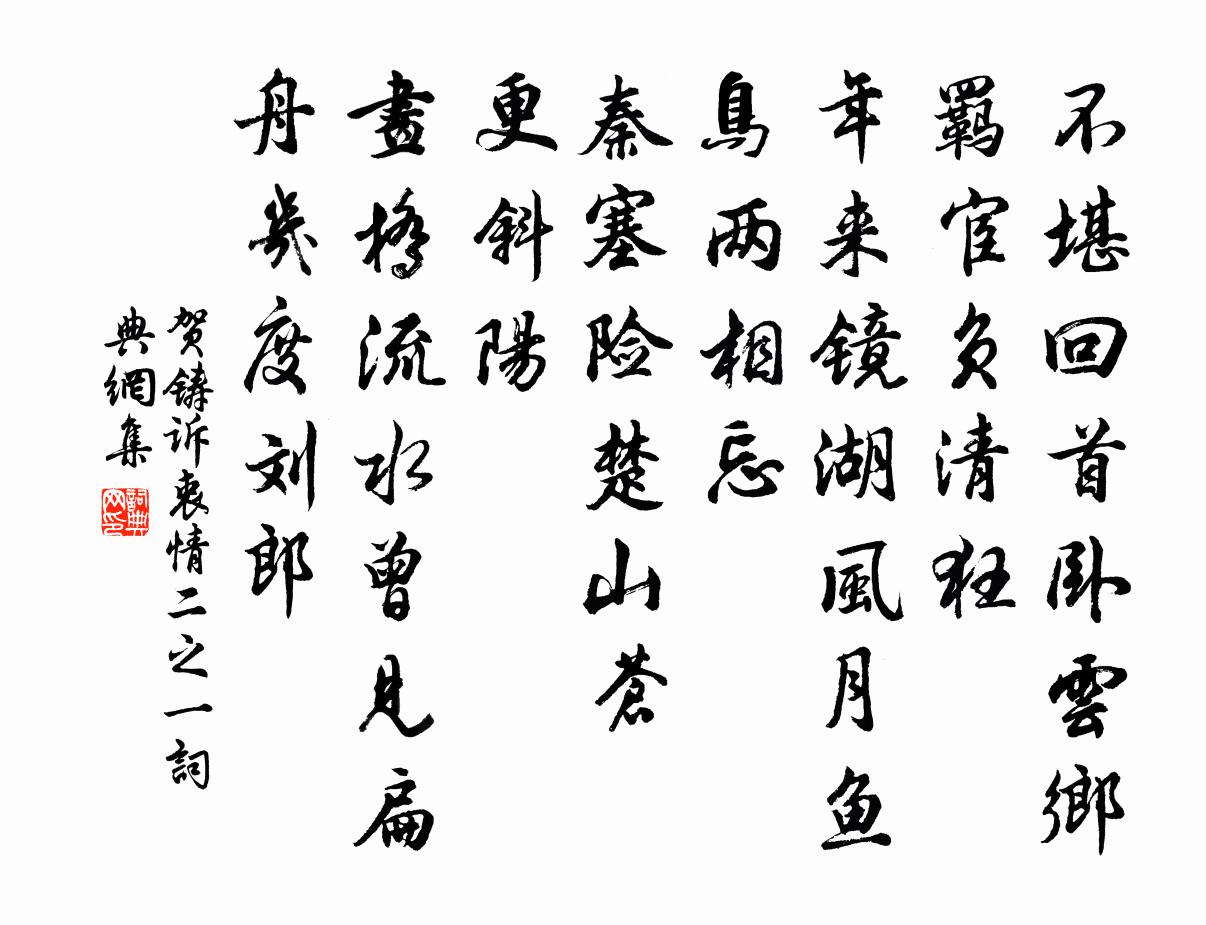 不堪回首卧雲鄉
羈宦負清狂
年来鏡湖風月魚
鳥两相忘
秦塞险楚山蒼
更斜陽
畫橋流水曾見扁
舟幾度刘郎
贺鑄诉衷情二之一詞
典網集
詞典网印